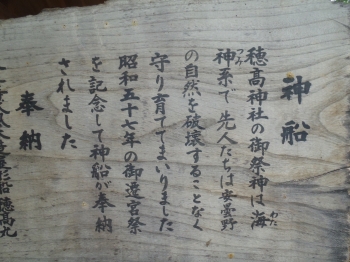 神船
穂高神社の御祭神は海
わた
神系で先人たちは安曇野
つみ
の自然を破壊することなく
守り育ててまいりました
昭和五十七年の御遷宮祭
を記念して神船が奉納
されました
奉納
穂高北